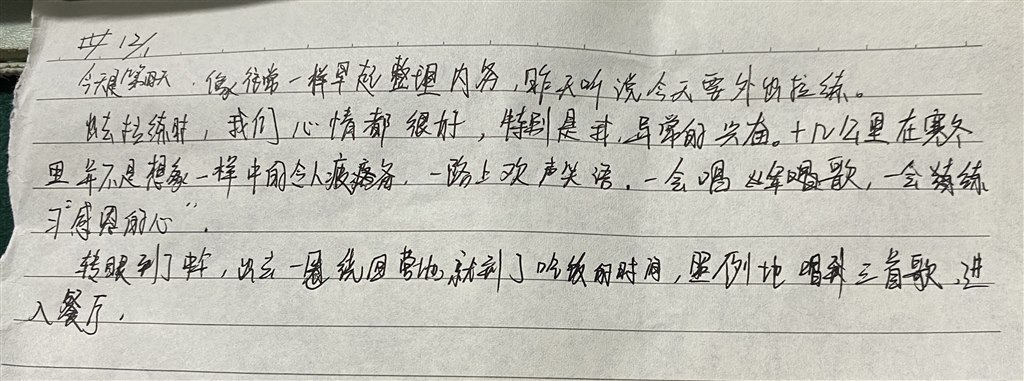 12/1
今天是第四天．像往常一样早起整理内务，昨天听说今天要外出拉练。
出去拉练时，我们心情都很好，特别是我，异常的兴奋。十几公里在寒冬
里并不是想象一样中的令人疲惫，一路上欢声笑语．一会唱军唱歌，一会练练
习"感恩的心"．
转眼到了中午，出去一圈绕回营地就到了吃饭的时间，照例地唱到三首歌、进
入餐厅．